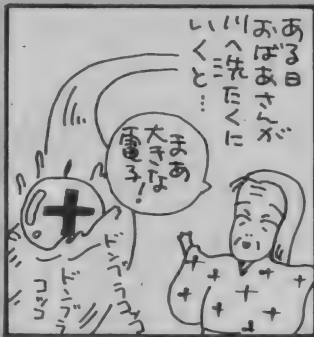 ある日
おばあさんが
川へ洗たくに
いくと…
まあ
大きな
電子!
ドンブラコッコ
ドンブラ
コッコ